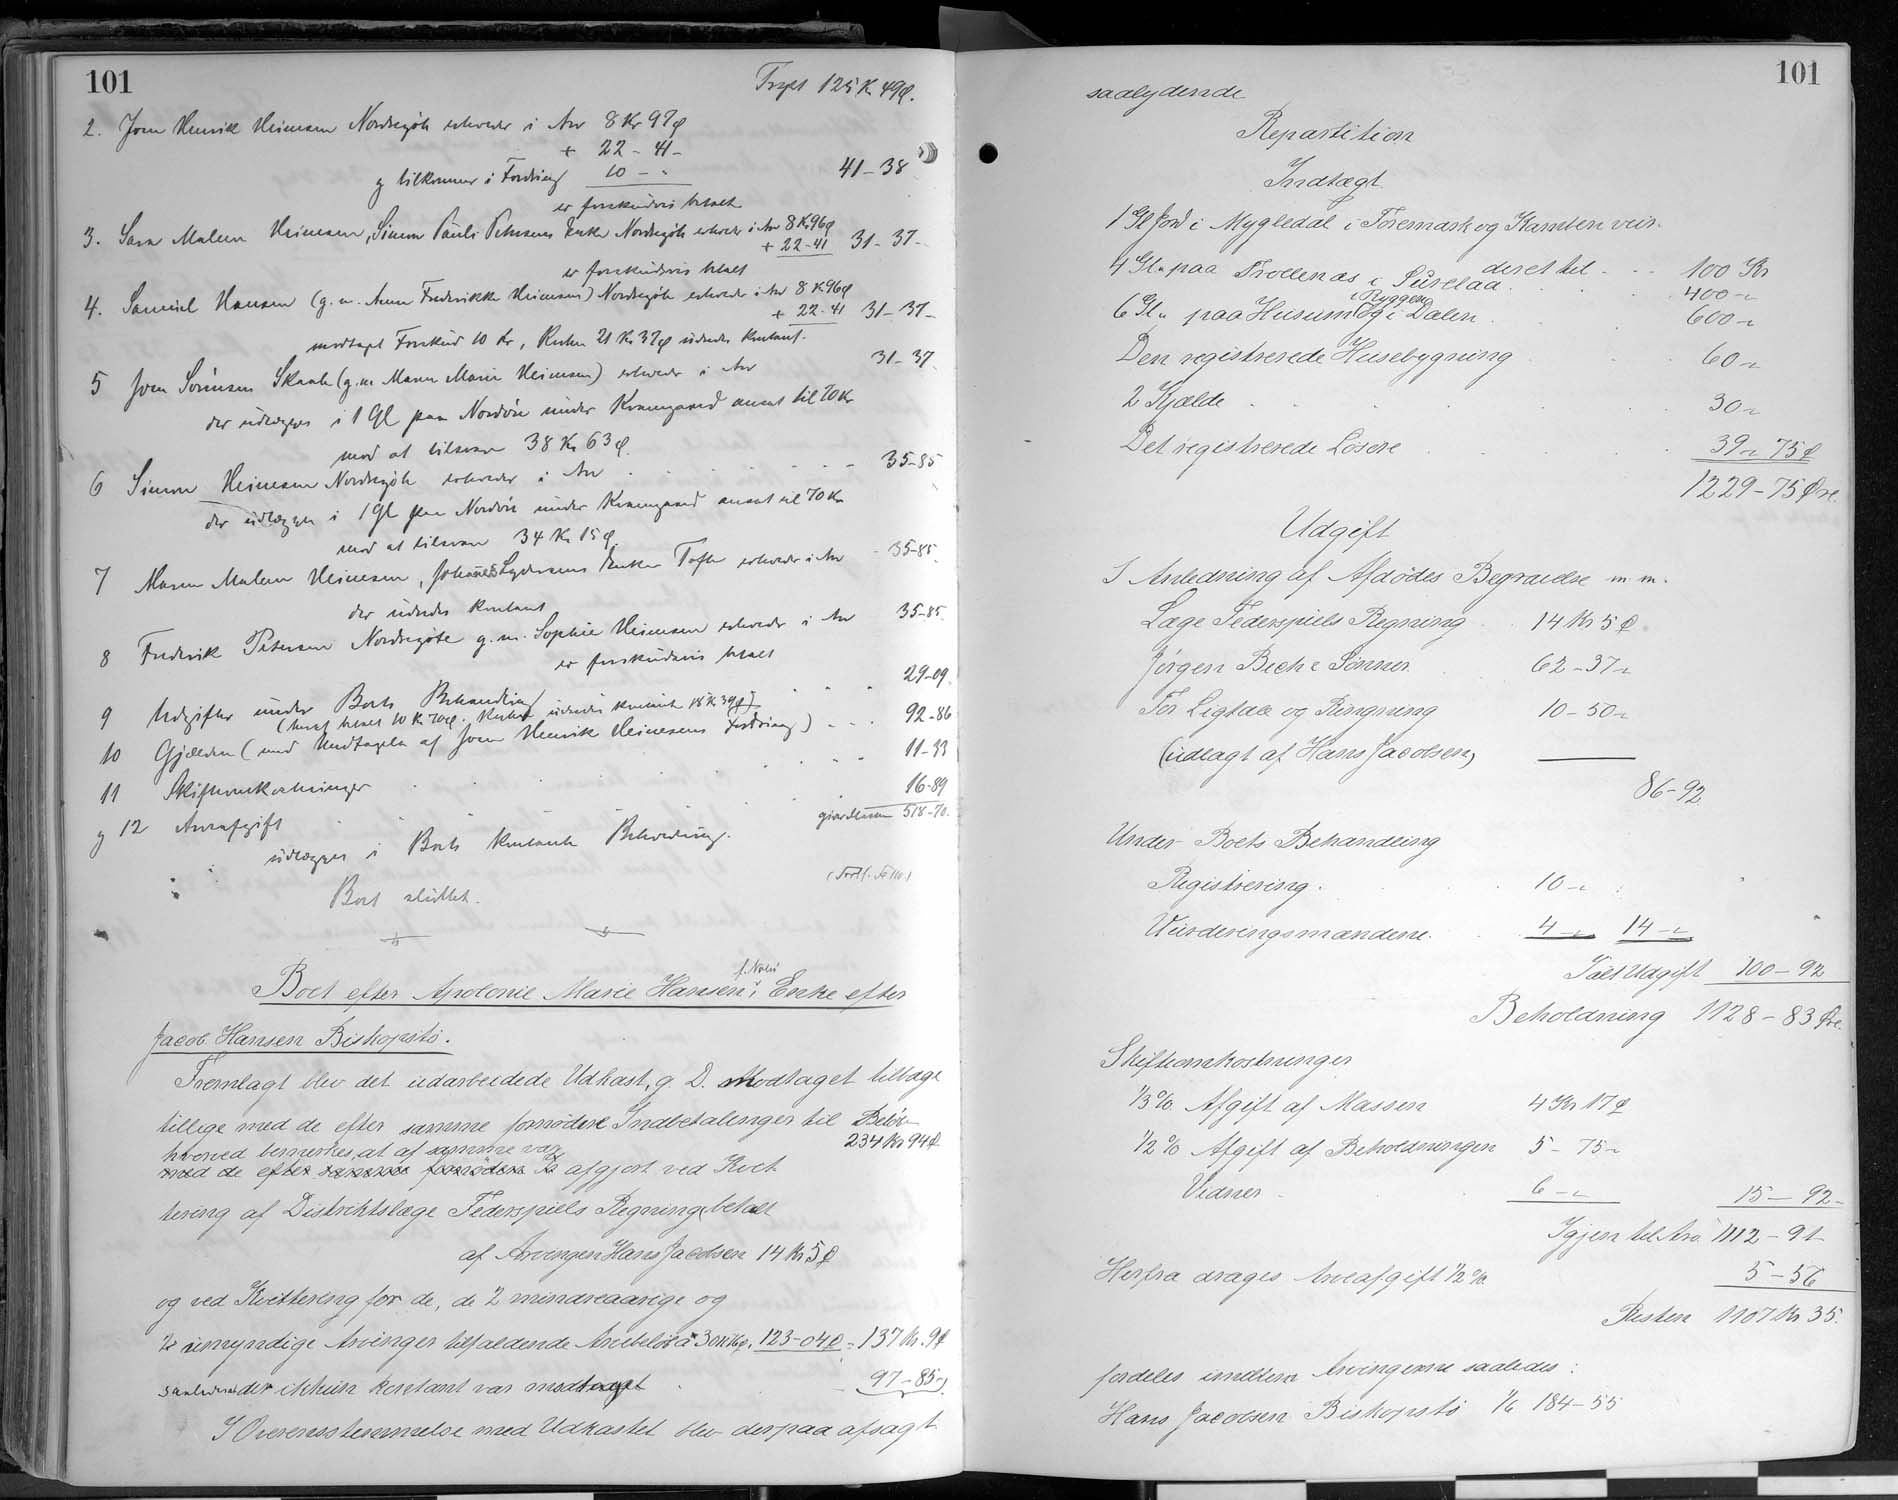 101
Trspt 125 Kr 49 Ø.
2. Joen Henrik Heinesen Nordregjöte erholder i Arv 8 Kr 97 Ø
+ 22 - 41 -
og tilkommer i Fordring 10 - " 41 - 38
er forskudsvis betalt
3. Sara Malene Heinesen, Simon Pauli Petersens Enke Nordregjöte erholder i Arv 8 Kr 96 Ø
+ 22 - 41 31 - 37 -
er forskudsvis betalt
4. Samuel Hansen (g. m. Anne Frederikke Heinesen) Nordregjöte erholder i Arv 8 Kr 96 Ø
+ 22 - 41 31 - 37 -
modtaget Forskud 10 Kr, Resten 21 Kr 37 Ø udredes kontant.
5 Joen Sörensen Skaale (g. m. Maren Marie Heinesen) erholder i Arv 31 - 37.
der udlægges i 1 Gl paa Nordöre under Kvamgaard ansat til 70 Kr
mod at tilsvare 38 Kr 63 Ø.
6 Simon Heinesen Nordregjöte erholder i Arv 35 - 85
der udlægges i 1 Gl paa Nordöre under Kvamgaard ansat til 70 Kr
mod at tilsvare 34 Kr 15 Ø.
7 Maren Malene Heinesen, Johannes Lydersens Enke Tofte erholder i Arv - 35 - 85.
der udredes kontant
8 Frederik Petersen Nordregjöte g. m. Sophie Heinesen erholder i Arv 35 - 85.
er forskudsvis betalt
9 Udgifter under Boets Behandling 29 - 09.
(heraf betalt 10 Kr 70 Ø. Resten udredes kontant 18 Kr 39 Ø)
10 Gjælden (med Undtagelse af Joen Henrik Heinesens Fordring) - - - 92 - 86
11 Skifteomkostninger 11 - 33
og 12 Arveafgift 16 - 89
udlægges i Boets kontante Beholdning. 518 - 70.
Boet sluttet.
Boet efter Apolonie Marie Hansen, f. Nolsö Enke efter
Jacob Hansen Biskopstö.
Fremlagt blev det udarbeidede Udkast, g D. Modtaget tilbage
tillige med de efter samme fornödne Indbetalinger til Belöb
234 Kr 94 Ø.
hvorved bemerkes, at af samme var
med de efter samme fornödne In afgjort ved Kvit
tering af Distriktslæge Federspiels Regning betalt
af Arvingen Hans Jacobsen 14 Kr 5 Ø
og ved Kvittering for de, de 2 mindreaarige og
2 umyndige Arvinger tilfaldende Arvebelöb a 30 Kr 76 Ø. 123 - 04 Ø = 137 Kr. 9 Ø
saaledes der ikkun kontant var modtaget 97 - 85 -
I Overensstemmelse med Udkastet blev derpaa afsagt
101
saalydende
Repartition
Indtægt
1 Gl Jord i Mygledal i Foremark og Kamben vur-
deret til - - - 100 Kr
4 Gl " paa Trollenæs i Surelaa 400 - "
6 Gl " paa Husum i Ryggen og i Dalen 600 - "
Den registrerede Husebygning 60 - "
2 Kjælde 30 - "
Det registrerede Lösöre 39 " 75 Ø
1229 - 75 Øre.
Udgift
I Anledning af Afdödes Begravelse m m.
Læge Federspiels Regning 14 Kr 5 Ø.
Jörgen Bech & Sönner 62 - 37 "
For Ligtale og Ringning 10 - 50 "
(udlagt af Hans Jacobsen)
86 - 92
Under Boets Behandling
Registrering. 10 - "
Vurderingsmændene. 4 - " 14 - "
Ialt Udgift 100 - 92
Beholdning 1128 - 83 Øre.
Skifteomkostninger
1/3 % Afgift af Massen 4 Kr 17 Ø
1/2 % Afgift af Beholdningen 5 - 75 "
Vidner 6 - " 15 - 92 -
Igjen til Arv 1112 - 91
Herfra drages Arveafgift 1/2 % 5 - 56
Resten 1107 Kr 35.
fordeles imellem Arvingerne saaledes:
Hans Jacobsen Biskopstö 1/6 184 - 55